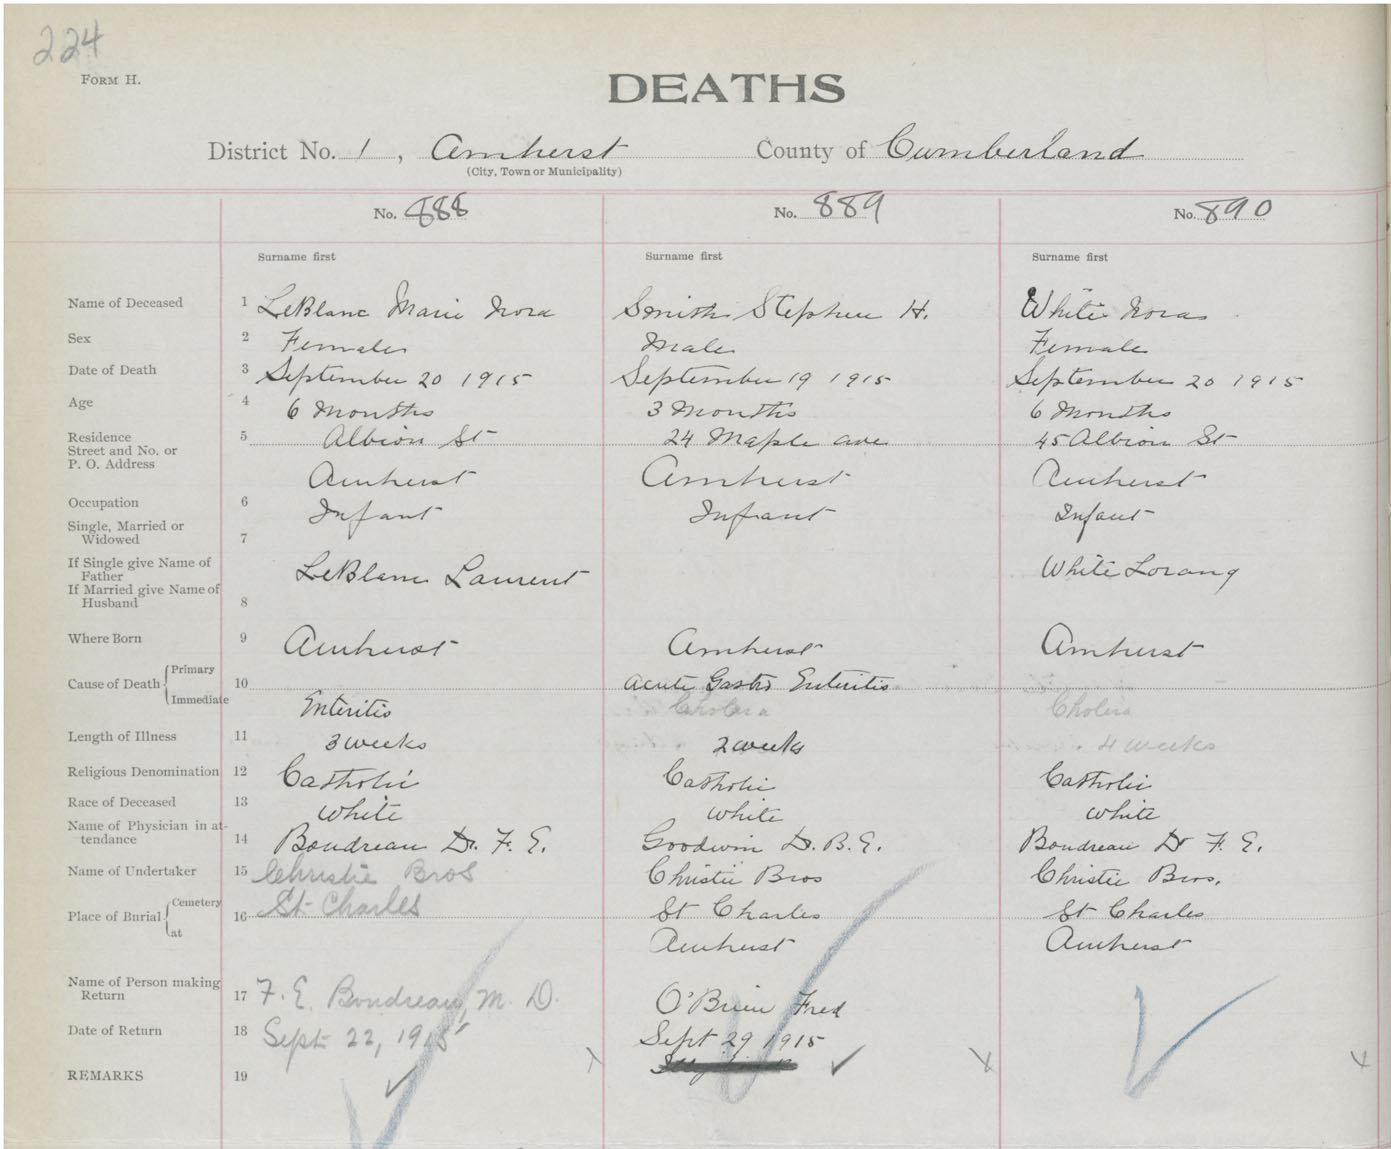 224
FORM H.
DEATHS
District No. 1, Amherst County of Cumberland
(City, Town or Municipality)
No. 888 No. 889 No. 890
Surname first Surname first Surname first
Name of Deceased 1 LeBlanc Marie Nora Smith Stephen H. White Nora
Sex 2 Female Male Female
Date of Death 3 September 20 1915 September 19 1915 September 20 1915
Age 4 6 Months 3 Months 6 Months
Residence
Street and No. or
P. O. Address
5 Albion St 24 Maple ave 45 Albion St
Amherst Amherst Amherst
Occupation 6 Infant Infant Infant
Single, Married or
Widowed 7
If Single give Name of
Father LeBlanc Laurent White Lorang
If Married give Name of
Husband 8
Where Born 9 Amherst Amherst Amherst
Cause of Death Primary 10 Acute Gastro Enteritis
Immediate Enteritis Cholera Cholera
Length of Illness 11 3 weeks 2 weeks 4 weeks
Religious Denomination 12 Catholic Catholic Catholic
Race of Deceased 13 White White White
Name of Physician in at-
tendance 14 Boudreau Dr. F. E. Goodwin Dr. B. E. Boudreau Dr F. E.
Name of Undertaker 15 Christie Bros Christie Bros Christie Bros.
Place of Burial Cemetery 16 St Charles St Charles St Charles
at Amherst Amherst
Name of Person making
Return 17 F. E. Boudreau, M. D. O'Brien Fred
Date of Return 18 Sept 22, 1915 Sept 29 1915
REMARKS 19